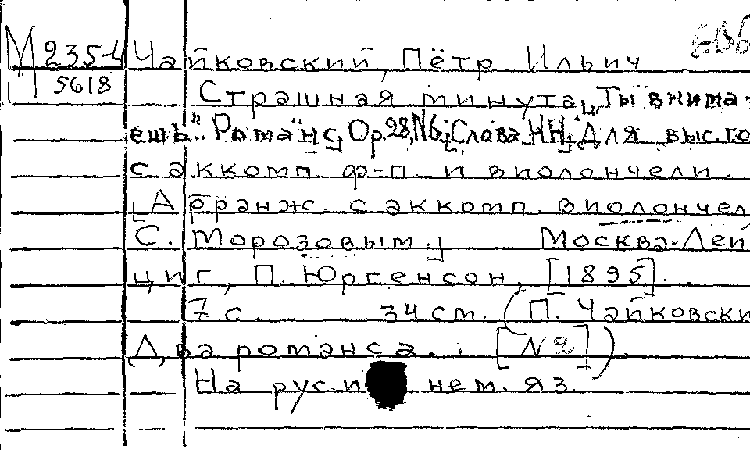 М 235-1 Чайковский, Пётр Ильич
5618 Страшная минута „Ты внима-
ешь.." Романс, Ор.28, №6, [Слова НН] Для выс. го
с аккомп. ф-п. и виолончели.
[Аранж. с аккомп. виолончел
С. Морозовым.] Москва-Лей
циг, П. Юргенсон, [1895].
7 с. 34 см. (П. Чайковски
Два романса.. [№2])
На рус. и нем. яз.